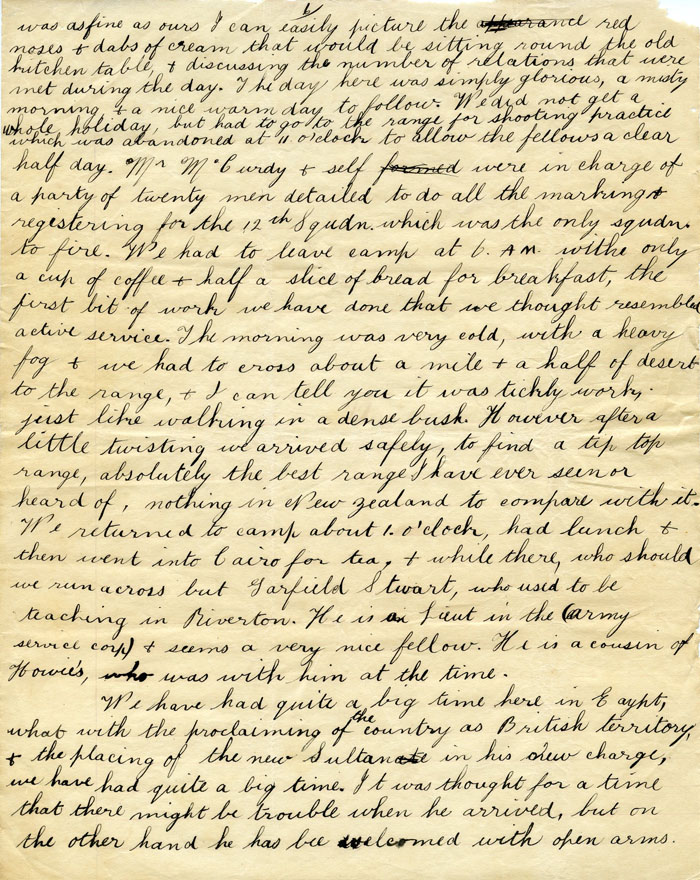 was as fine as ours I can easily picture the appearance red
noses + dabs of cream that would be sitting round the old
kitchen table, + discussing the number of relations that were
met during the day. The day here was simply glorious, a misty
morning + a nice warm day to follow. We did not get a
whole holiday, but had to go to the range for shooting practice
which was abandoned at 11 o'clock to allow the fellows a clear
half day. Mr McCurdy + self formed were in charge of
a party of twenty men detailed to do all the marking +
registering for the 12th Squdn. which was the only squdn.
to fire. We had to leave camp at 6. AM. withe only
a cup of coffee + half a slice of bread for breakfast, the
first bit of work we have done that we thought resembled
active service. The morning was very cold, with a heavy
fog + we had to cross about a mile + a half of desert
to the range, + I can tell you it was tickly work,
just like walking in a dense bush. However after a
little twisting we arrived safely, to find a tip top
range, absolutely the best range I have ever seen or
heard of, nothing in New Zealand to compare with it.
We returned to camp about 1. o'clock, had lunch +
then went into Cairo for tea, + while there, who should
we run across but Garfield Stwart, who used to be
teaching in Riverton. He is a Lieut in the (army
service corp) + seems a very nice fellow. He is a cousin of
Howie's, who was with him at the time.
We have had quite a big time here in Eaypt,
what with the proclaiming of the country as British territory,
+ the placing of the new Sultanate in his new charge,
we have had quite a big time. It was thought for a time
that there might be trouble when he arrived, but on
the other hand he has bee welcomed with open arms.